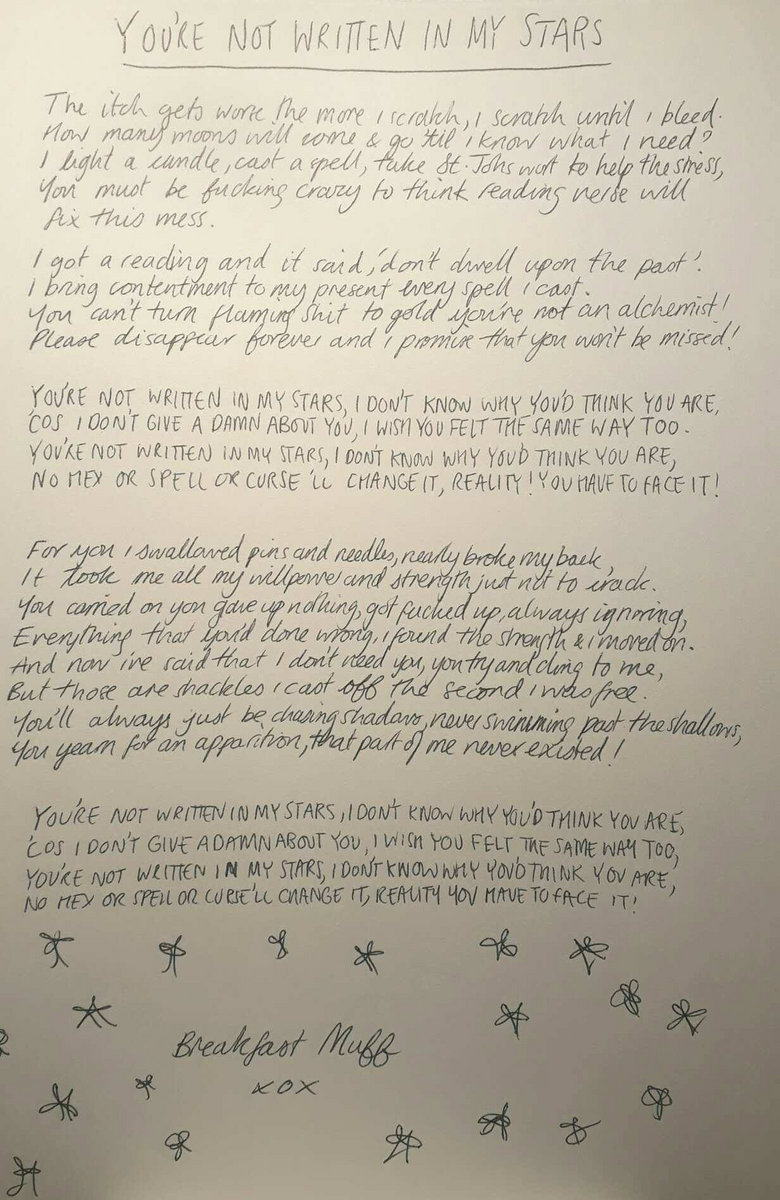 YOU'RE NOT WRITTEN IN MY STARS
The itch gets worse the more i scratch, i scratch until i bleed.
How many moons will come & go 'til i know what i need?
I light a candle, cast a spell, take St. Johs wort to help the stress,
You must be fucking crazy to think reading verse will
fix this mess.
I got a reading and it said, 'don't dwell upon the past'.
I bring contentment to my present every spell i cast.
You can't turn flaming shit to gold you're not an alchemist!
Please disappear forever and i promise that you won't be missed!
YOU'RE NOT WRITTEN IN MY STARS, I DON'T KNOW WHY YOU'D THINK YOU ARE,
'COS I DON'T GIVE A DAMN ABOUT YOU, I WISH YOU FELT THE SAME WAY TOO.
YOU'RE NOT WRITTEN IN MY STARS, I DON'T KNOW WHY YOU'D THINK YOU ARE,
NO HEX OR SPELL OR CURSE 'LL CHANGE IT, REALITY! YOU HAVE TO FACE IT!
For you i swallowed pins and needles, nearly broke my back,
It took me all my willpower and strength just not to crack.
You carried on you gave up nothing, got fucked up, always ignoring,
Everything that you'd done wrong, i found the strength & i moved on.
And now i've said that I don't need you, you try and cling to me,
But those are shackles i cast off the second i was free.
You'll always just be chasing shadows, never swimming past the shallows,
You yearn for an apparition, that part of me never existed!
YOU'RE NOT WRITTEN IN MY STARS, I DON'T KNOW WHY YOU'D THINK YOU ARE,
'COS I DON'T GIVE A DAMN ABOUT YOU, I WISH YOU FELT THE SAME WAY TOO,
YOU'RE NOT WRITTEN IN MY STARS, I DON'T KNOW WHY YOU'D THINK YOU ARE,
NO HEX OR SPELL OR CURSE'LL CHANGE IT, REALITY YOU HAVE TO FACE IT!
Breakfast Muff
xox